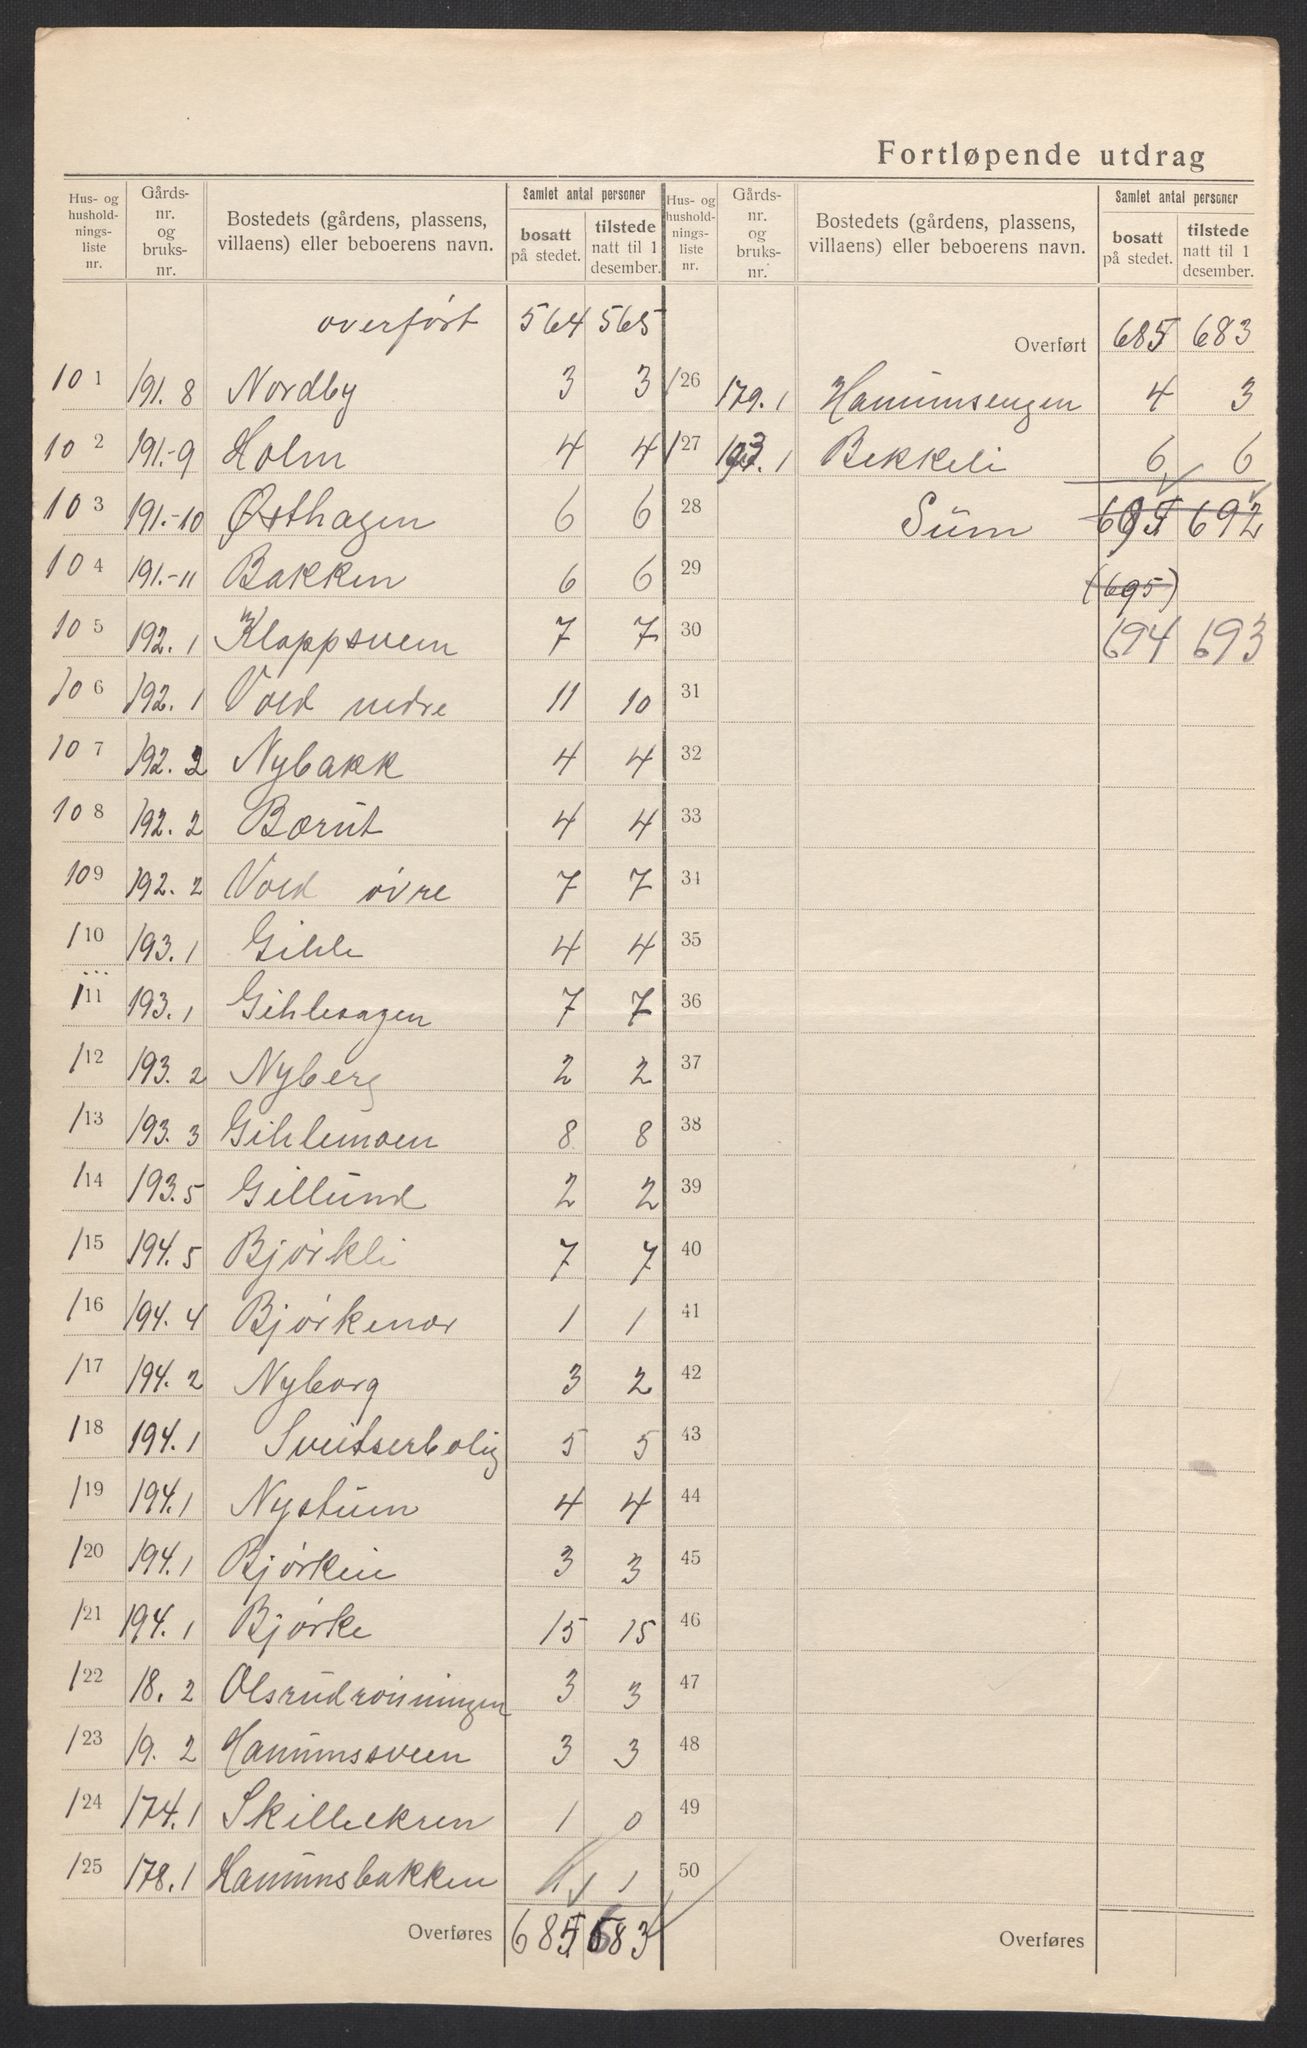 Fortløpende utdrag
Hus- og hushold-nings-liste nr. Gårds-nr. og bruks-nr. Bostedets (gårdens, plassens, villaens) eller beboerens navn. Samlet antal personer bosatt på stedet. tilstede natt til 1 desember.
Hus- og hushold-nings-liste nr. Gårds-nr. og bruks-nr. Bostedets (gårdens, plassens, villaens) eller beboerens navn. Samlet antal personer bosatt på stedet. tilstede natt til 1 desember.
overført 564 565
101 191. 8 Nordby 3 3
102 191.-9 Holm 4 4
103 191.-10 Østhagen 6 6
104 191.-11 Bakken 6 6
105 192. 1 Kloppsveen 7 7
106 192. 1 Vold nedre 11 10
107 192. 2 Nybakk 4 4
108 192. 2 Bærut 4 4
109 192. 2 Vold øvre 7 7
110 193. 1 Gihle 4 4
111 193. 1 Gihlehagen 7 7
112 193. 2 Nyberg 2 2
113 193. 3 Gihlemoen 8 8
114 193. 5 Gillund 2 2
115 194. 5 Bjørkli 7 7
116 194. 4 Bjørkenor 1 1
117 194. 2 Nyborg 3 2
118 194. 1 Sveitserbolig 5 5
119 194. 1 Nystuen 4 4
120 194. 1 Bjørkein 3 3
121 194. 1 Bjørke 15 15
122 18. 2 Olsrudrønningen 3 3
123 19. 2 Hanumssveen 3 3
124 174. 1 Skilleekren 1 0
125 178. 1 Hanumsbakken 1
Overføres 683
Overført 685 683
126 179. 1 Hanumsengen 4 3
127 193. 1 Bekkeli 6 6
28 Sum 695 692
29 (695)
30 694 693
31
32
33
34
35
36
37
38
39
40
41
42
43
44
45
46
47
48
49
50
Overføres